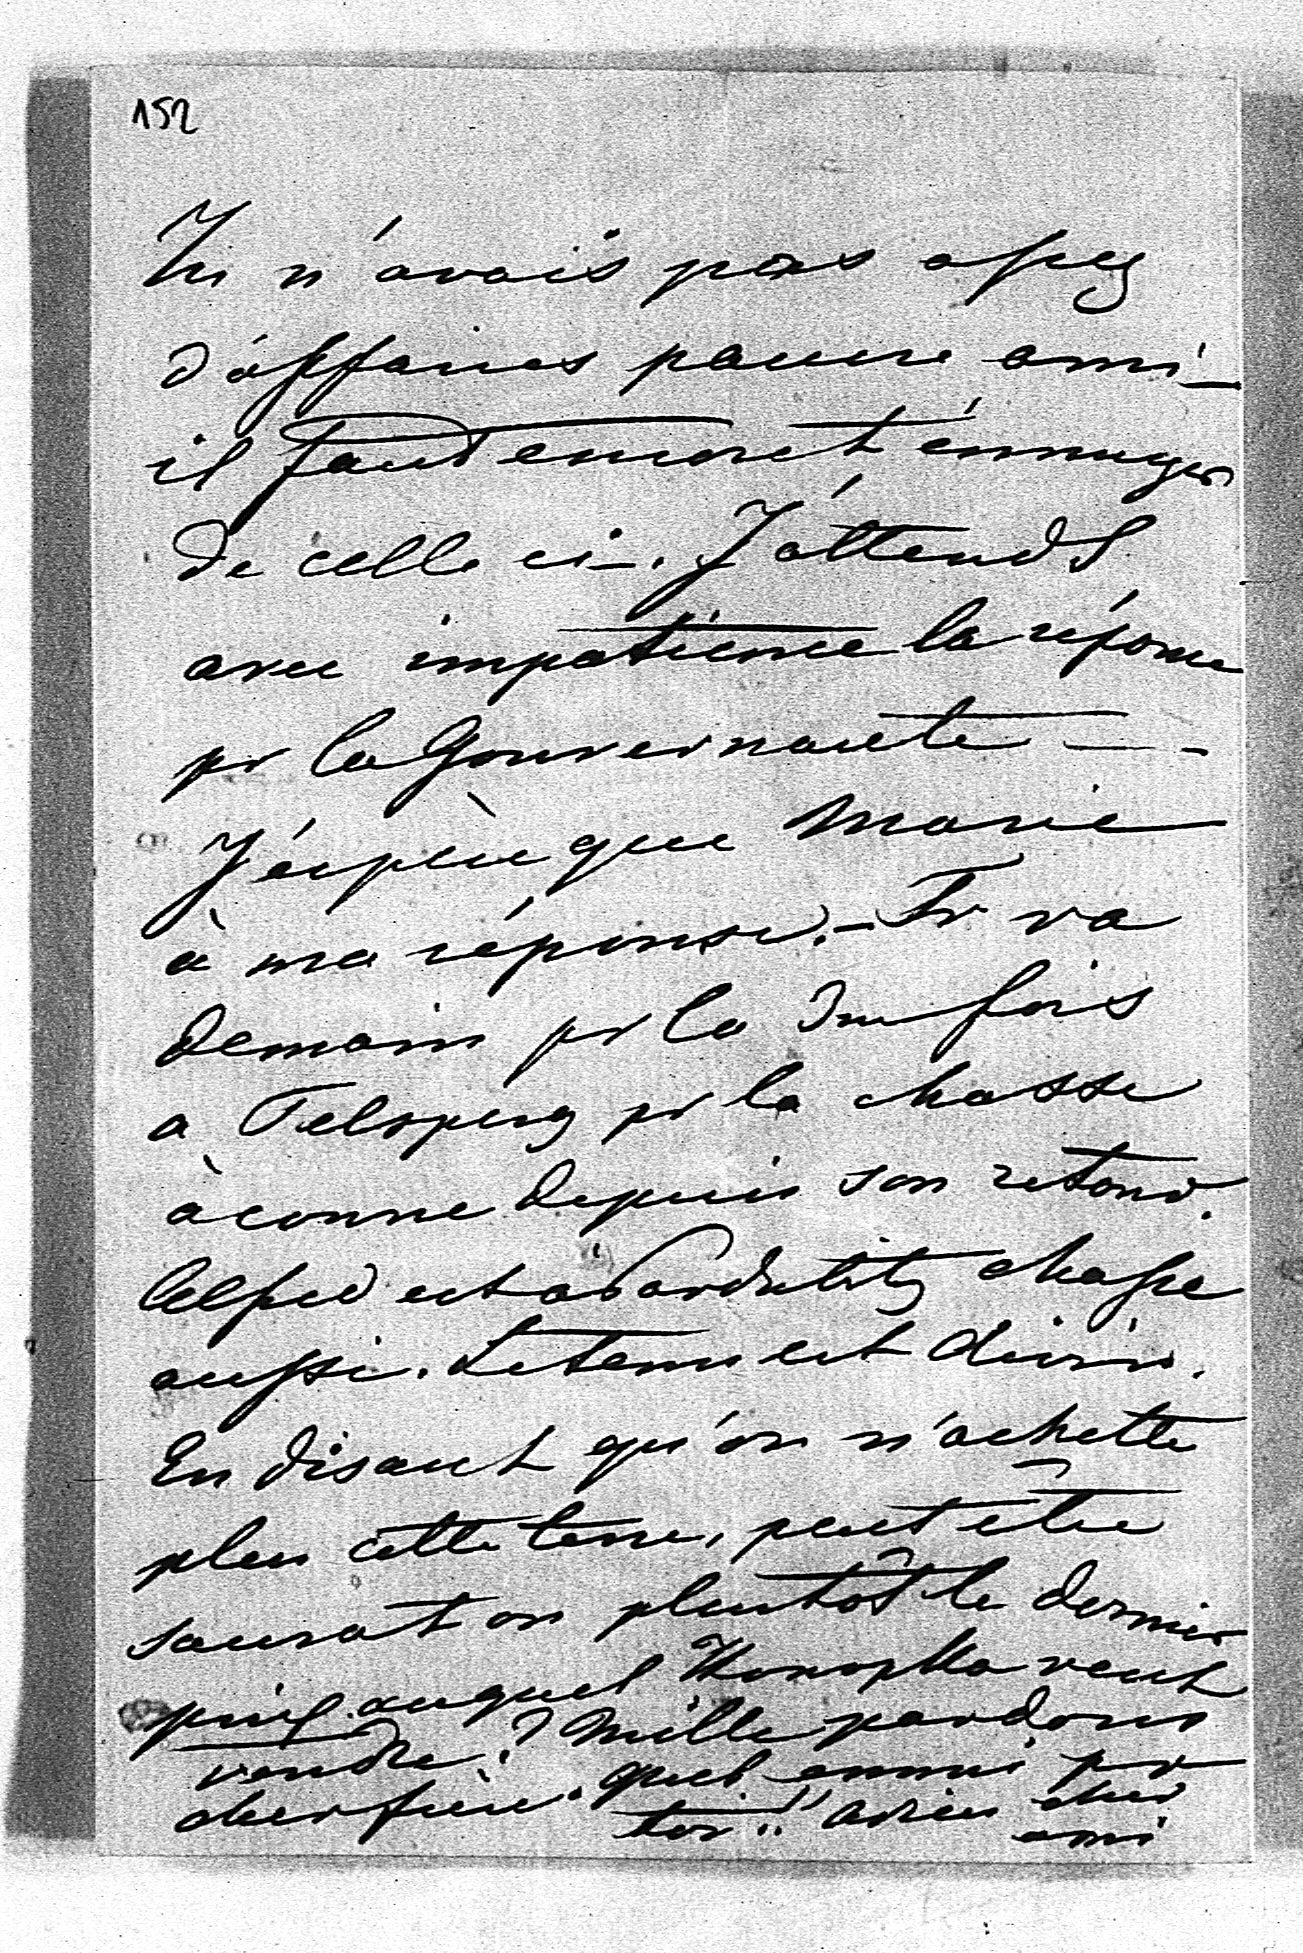 152
Tu n'avais pas assez
d'affaires pauvre ami_
il faut encore t'ennuyer
de celle ci_. J'attends
avec impatience la réponse
pr la Gouvernante _ _
J'éspère que Marie
à ma réponse._ Fr va
demain pr la 3me fois
a Felsperg pr la chasse
à courre depuis son retour.
Alfred est à chasse
aussi. Le tems est divin.
En disant qu'on n'achette
plus cette terre, peut être
saurat on plutôt le dernier
prix auquel Konopka veut
vendre? Mille pardons
cher frère. quel ennui pr
toi!! adieu cher
ami